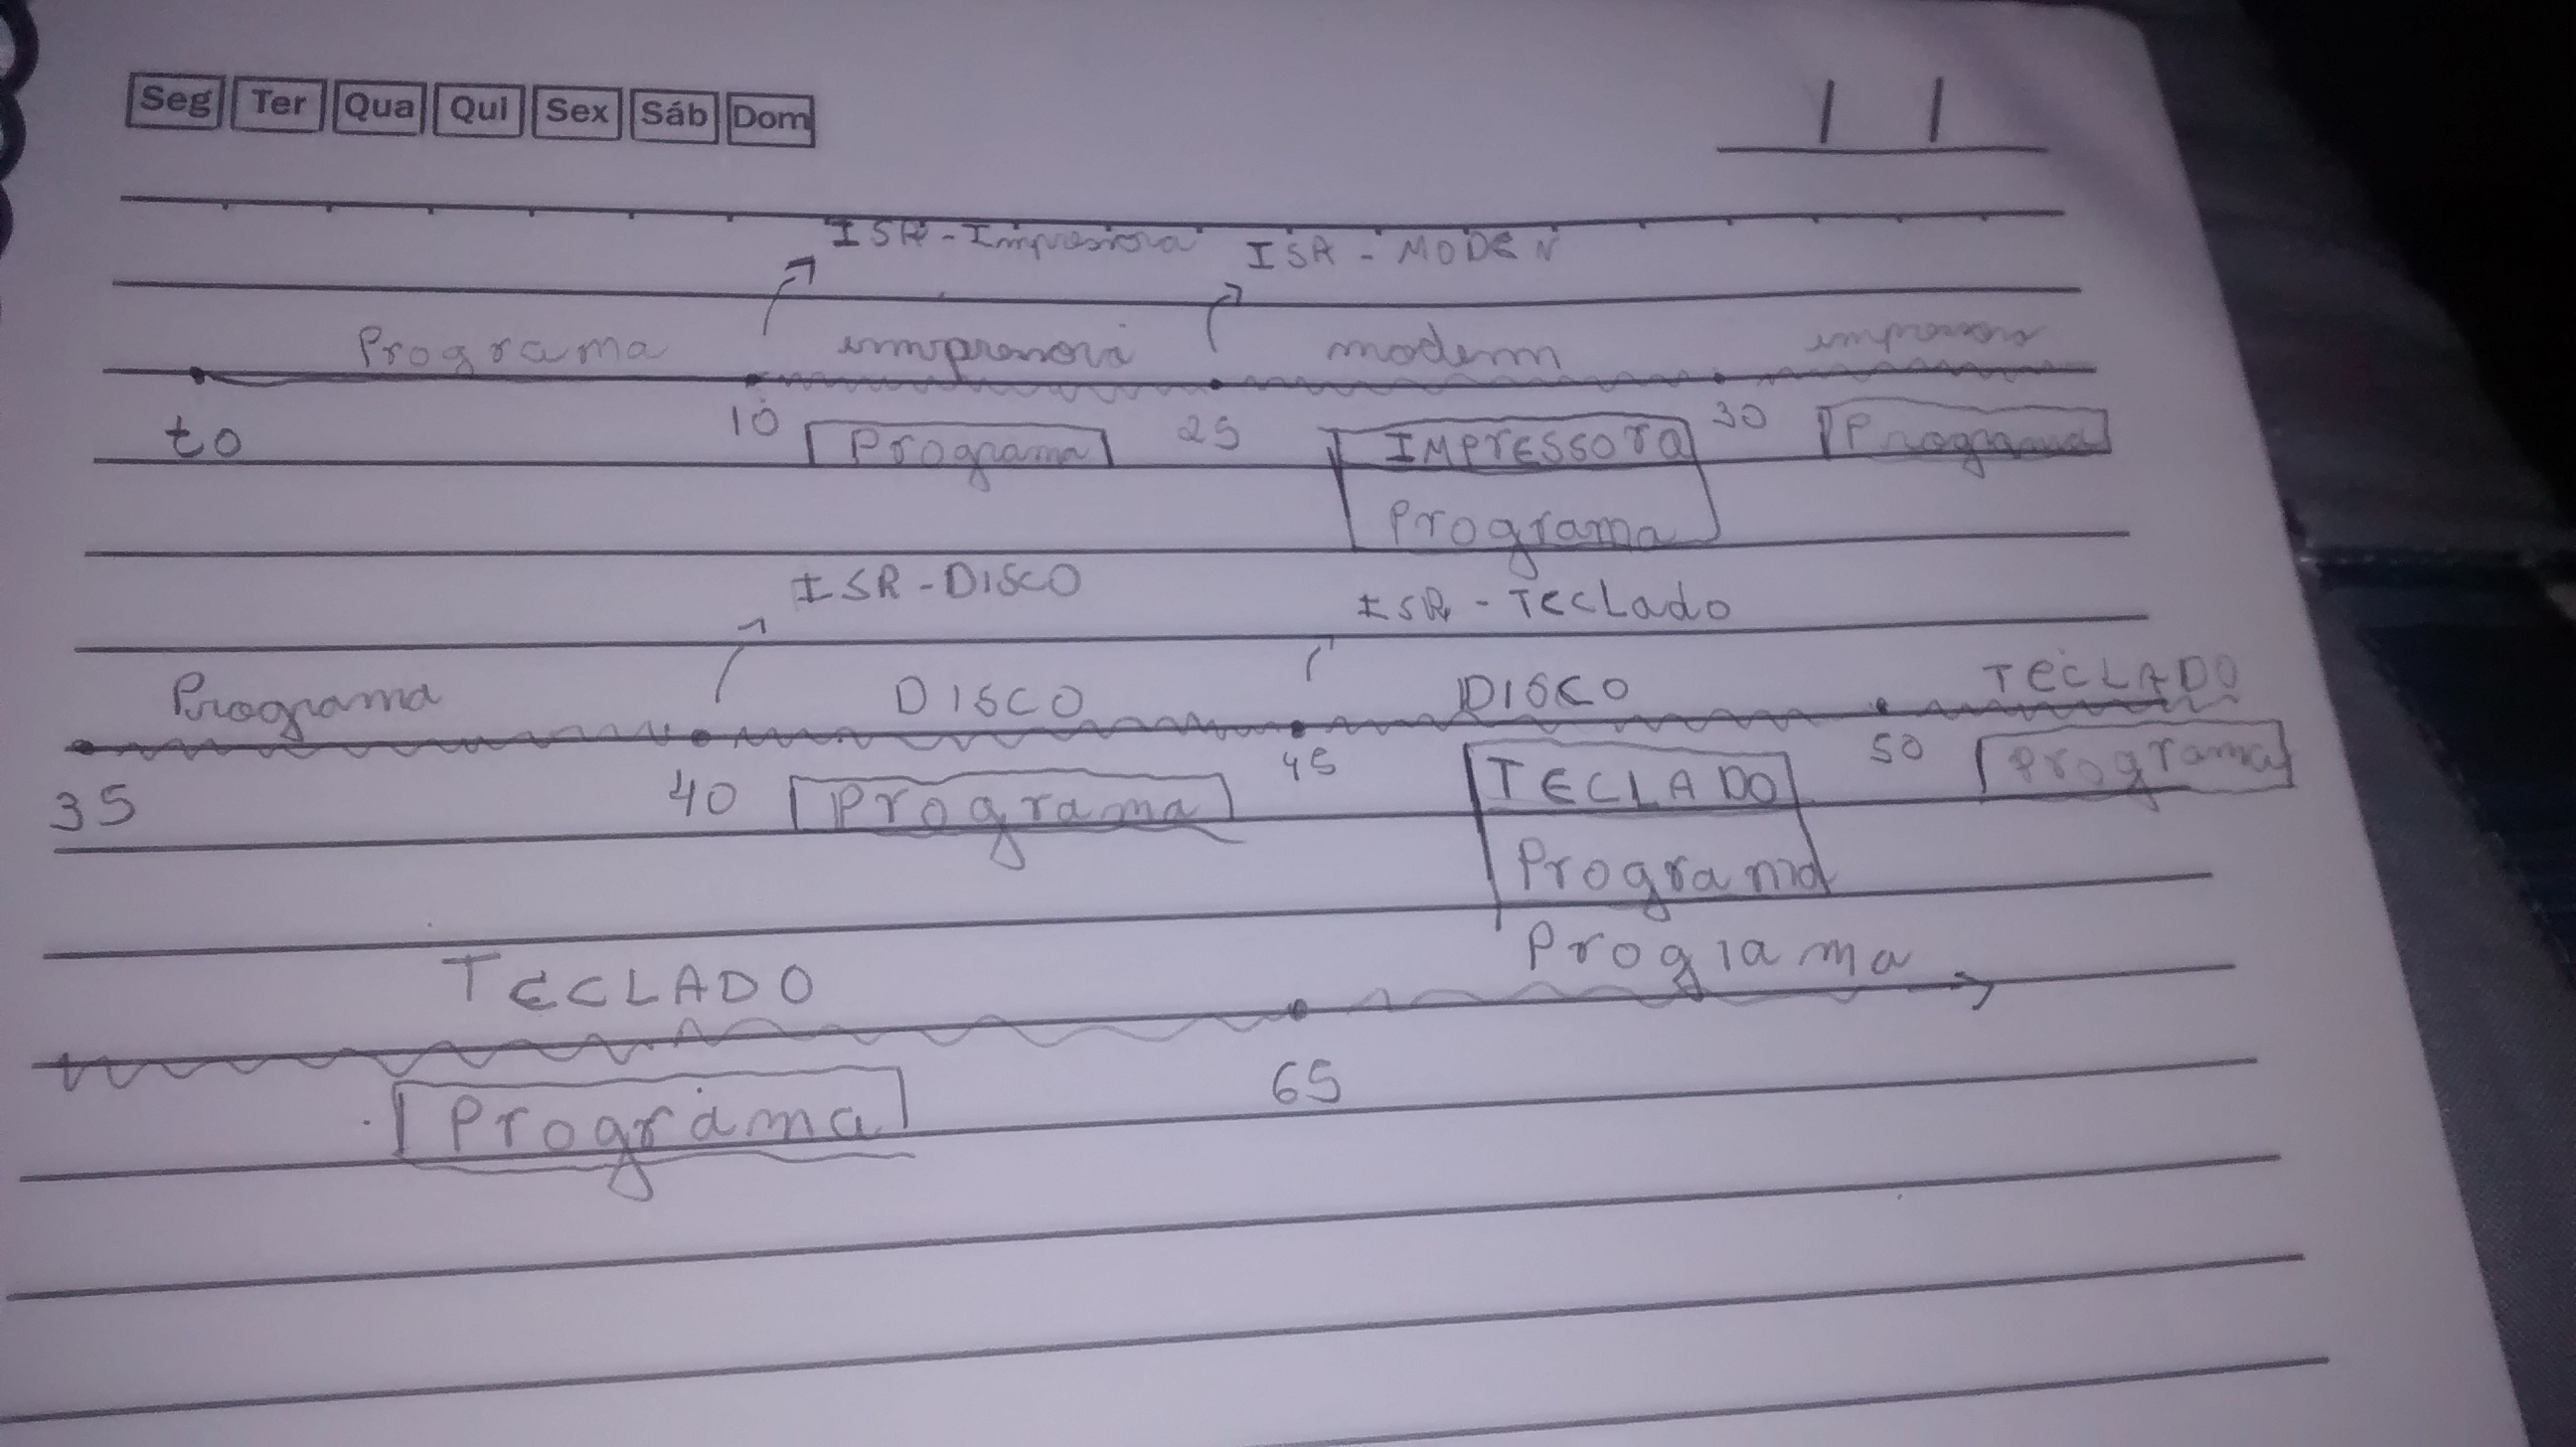 Seg Ter Qua Qui Sex Sáb Dom
/ /
ISR - Impressora ISR - MODEN
Programa impressora modem impressora
t0 10 Programa 25 IMPRESSORA 30 Programa
Programa
ISR - DISCO ISR - TECLado
Programa DISCO DISCO TECLADO
35 40 Programa 45 TECLADO 50 Programa
Programa
TECLADO Programa
Programa 65